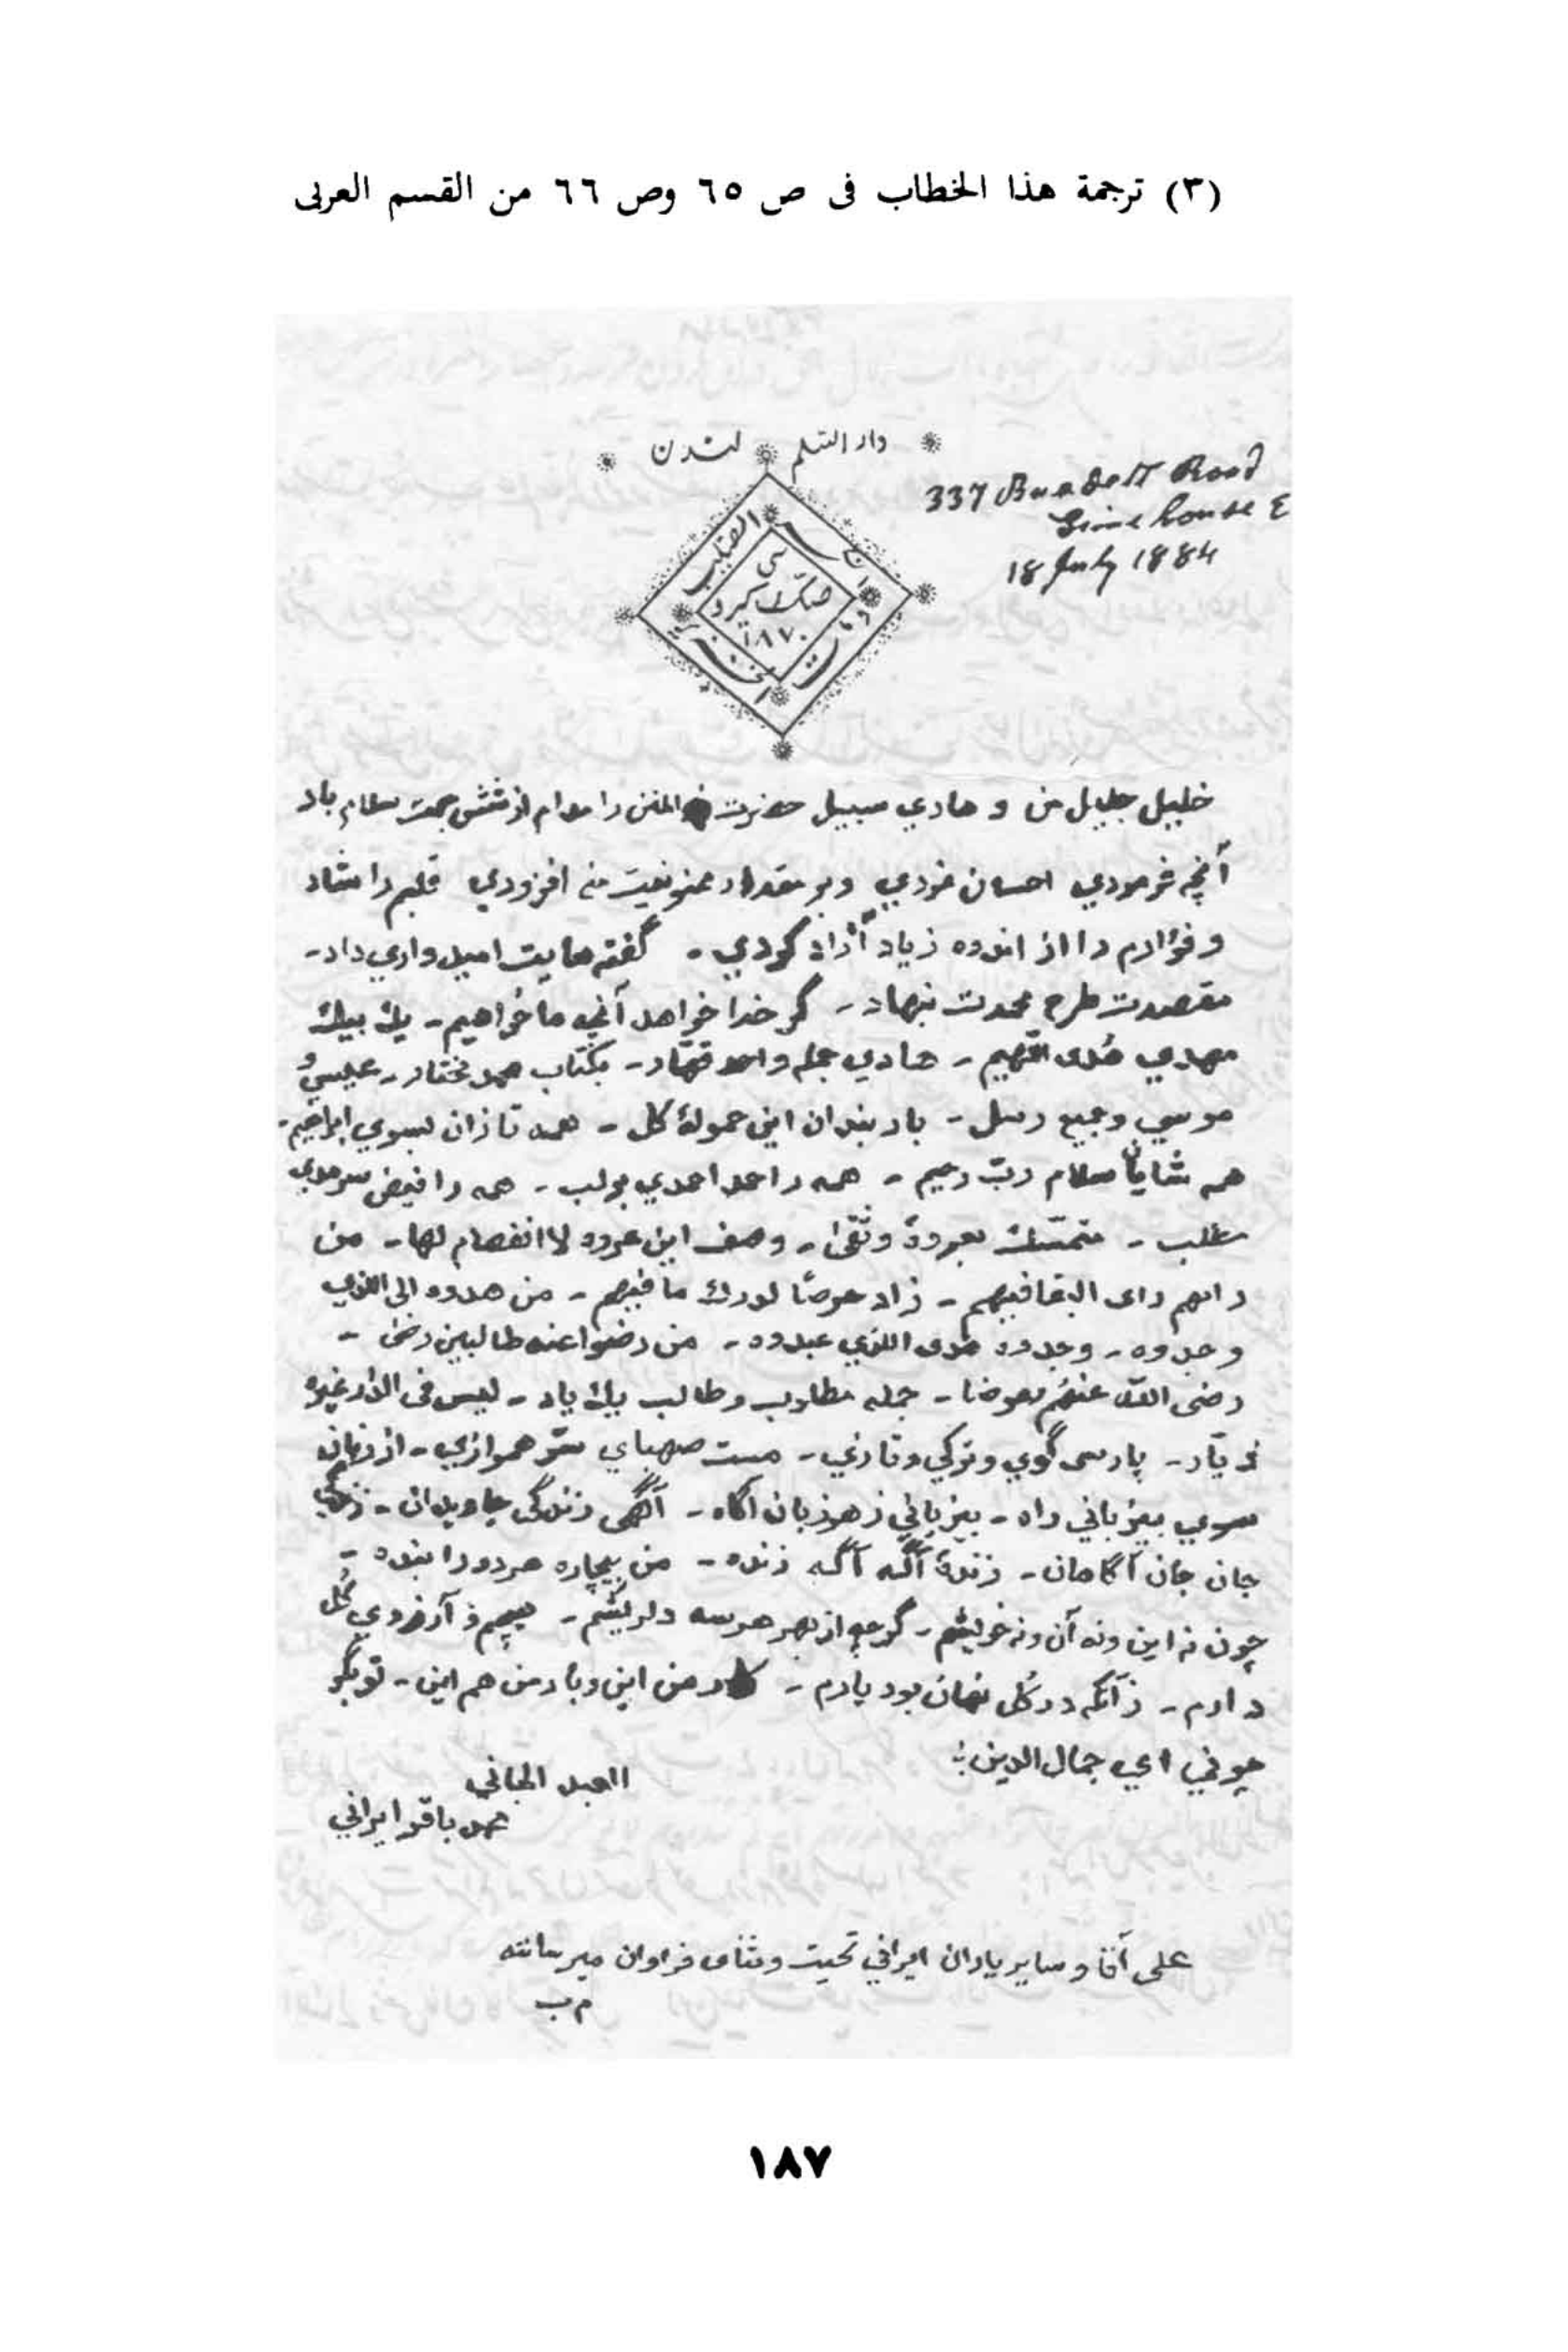 (٣) ترجمة هذا الخطاب فى ص ٦٥ وص ٦٦ من القسم العربى
دار السّلم لندن
337 Burdett Road
Limehouse E
18 July 1884
١٨٧٠
خليل جليل من و هادي سبيل حضرت المنن را مدام از شش جهت سلام باد
آنچه فرمودي احسان نمودي و بر مقدار ممنونيت من افزودي قلبم را شاد
و فؤادم را از اندوه زياد آزاد كردي - گفته هايت اميدواري داد -
مقصدت طرح محمدت بنهاد - گر خدا خواهد آني ما خواهيم - يك بيك
مهدي هُدى اللّهيم - هادي جمله واحد قهّار - بكتاب محمد مختار - عيسى و
موسي و جميع رسل - باربندان اين حمولۀ كل - همه تازان بسوي ابراهيم -
همه شايان سلام ربّ رحيم - همه را حمد احمدي بر لب - همه را فيض سرمدي
طلب - متمسّك بعروة وثقى - وصف اين عروه لا انفصام لها - من
راهم راى البقا فيهم - زاد حرصًا لدرك ما فيهم - من هدوه الى الذي
وجدوه - وجدوه هدى الذي عبدوه - من رضوا عنه طالبين رضى -
رضى اللّه عنهُم بعوضا - جمله مطلوب و طالب يك يار - ليس فى الدار غيره
ديّار - پارسى گوي و تركي و تازي - مست صهباي سرّ همرازي - از زبان
سوي بيزباني راه - بيزباني ز هر زبان آگاه - آگهى زندگى جاويدان - زندگى
جان جان آگاهان - زندۀ آگه آگه زنده - من بيچاره هر دو را بنده -
چون نه اين و نه آن و نه خويشم - گرچه از بهر هر سه دلريشم - بيم ز آرزوي گُل
دارم - زآنكه در گُل نهان بود يارم - كار من اين و بار من هم اين - تو بگو
چوني اي جمال الدين :
العبد الجاني
محمد باقر ايراني
على آقا و ساير ياران ايراني تحيت و ثناى فراوان ميرسانند
م ب
١٨٧